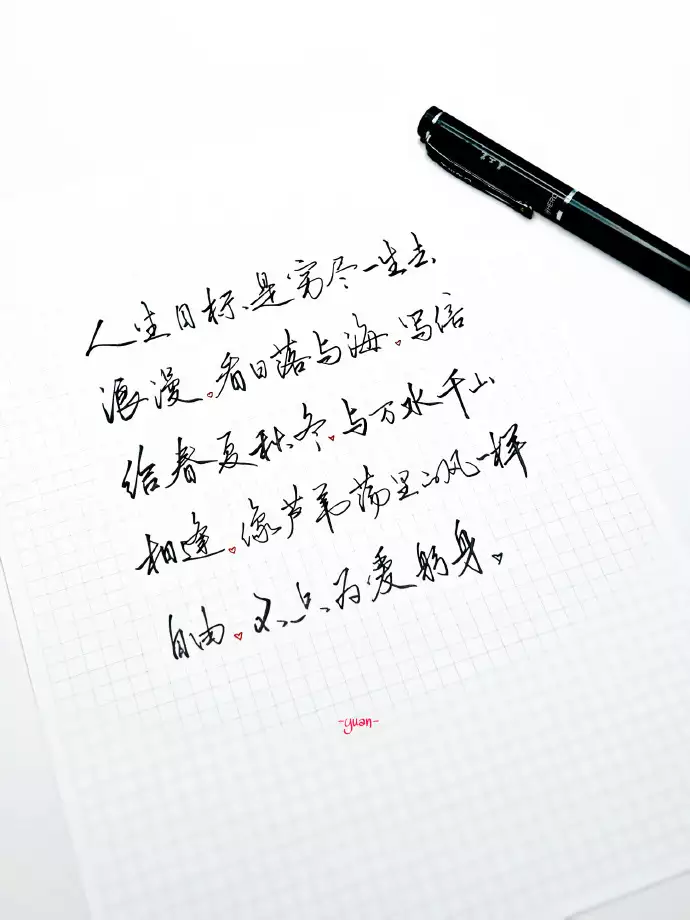 人生目标、是穷尽一生去
浪漫。看日落与海。写信
给春夏秋冬。与万水千山
相逢。像芦苇荡里的风一样
自由。又只为爱躬身。
-yuan-
HERO